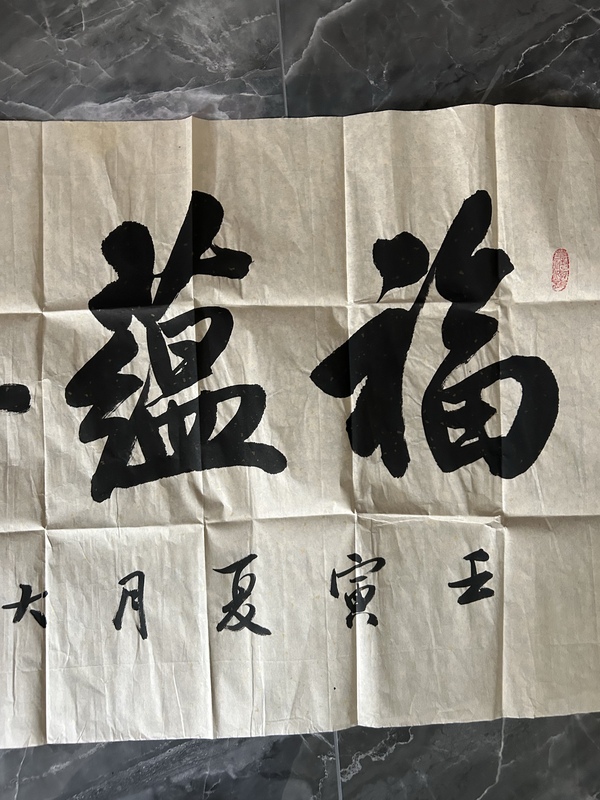 福蕴
壬寅夏月大